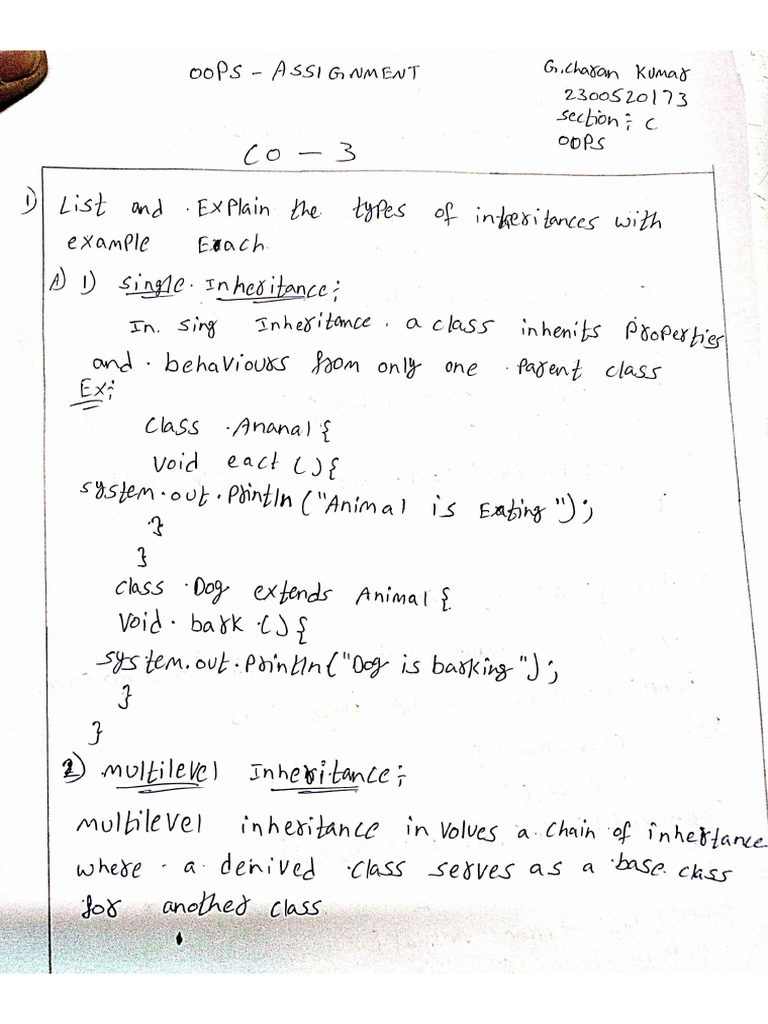 OOPS - ASSIGNMENT
G.charan Kumar
2300520173
section; C
OOPS
CO - 3
1) List and Explain the types of inheritances with
example Exach.
A) 1) single Inheritance;
In. sing Inheritance. a class inherits Properties
and behaviours from only one parent class
Ex;
class Ananal {
void eact () {
system.out.println ("Animal is Eating");
}
}
class Dog extends Animal {
void bark () {
system.out.println ("Dog is barking");
}
}
2) multilevel Inheritance;
multilevel inheritance in volves a chain of inhertance
where a derived class serves as a base class
for another class